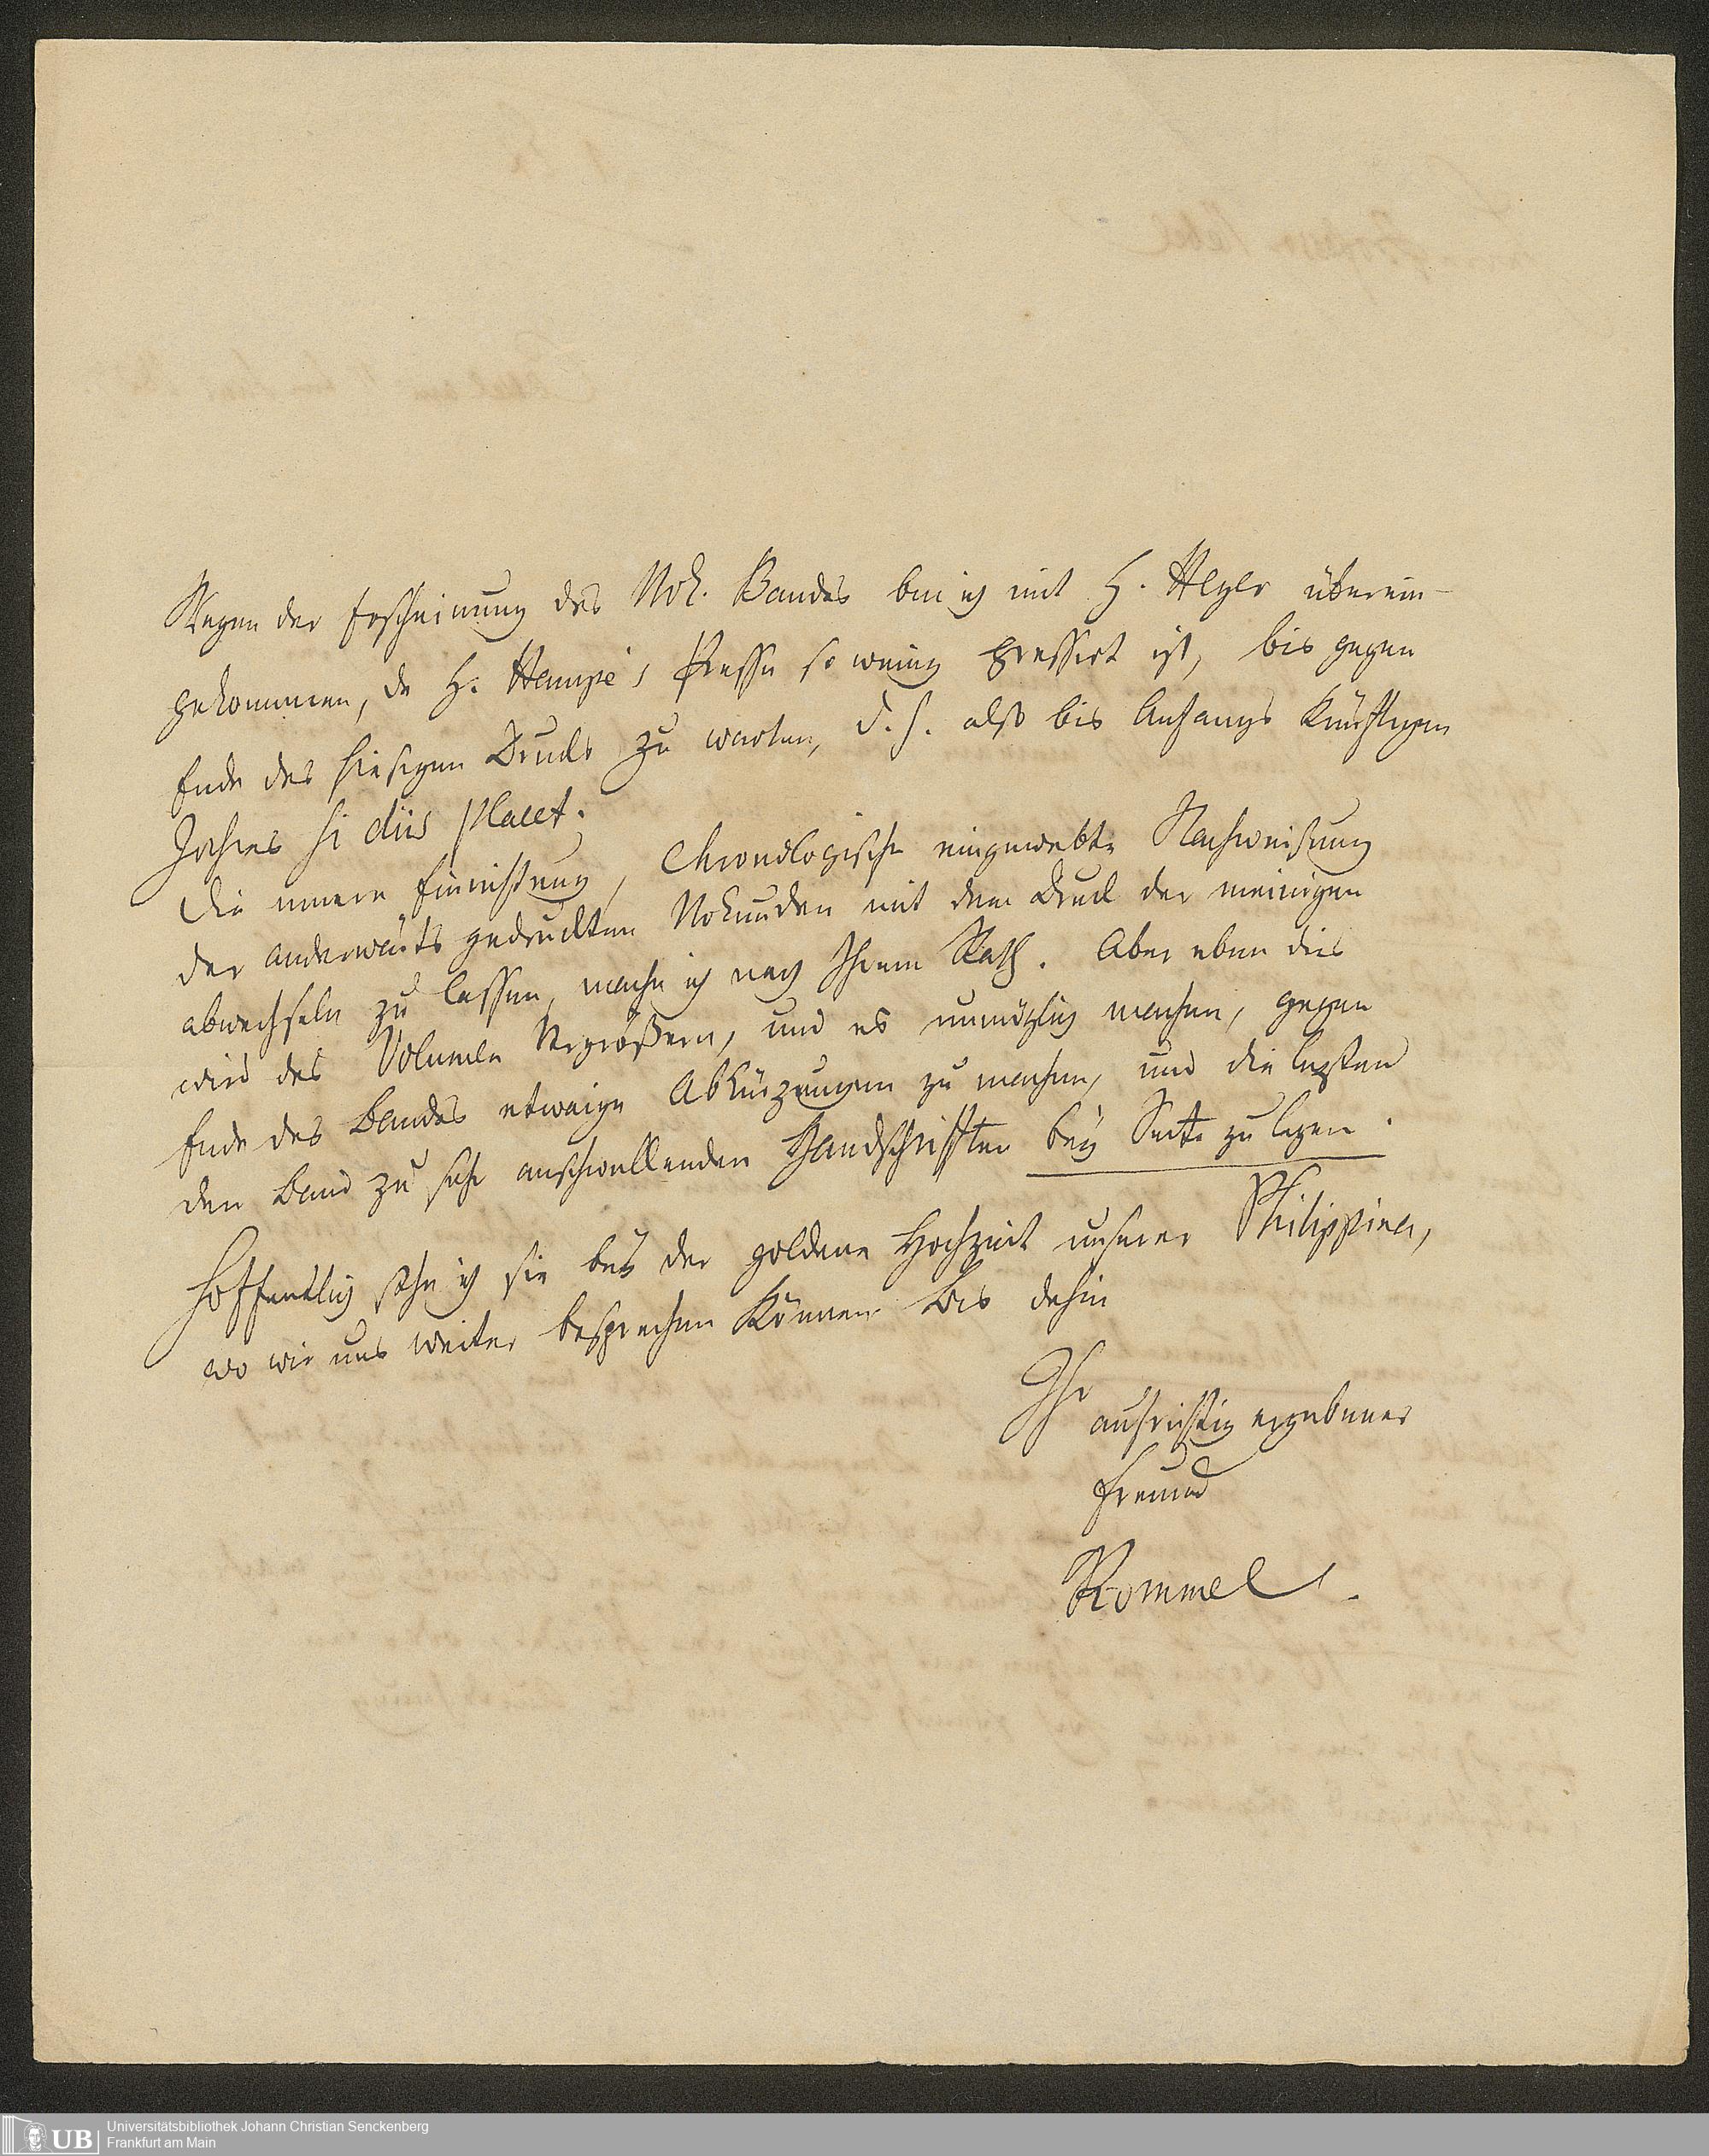 Wegen der Erscheinung des Urk. Bandes bin ich mit H. Heyer überein-
gekommen, da H. Hampe's Presse so wenig pressirt ist, bis gegen
Ende des hiesigen Drucks zu warten, d. h. also bis Anfangs künftigen
Jahres si diis placet.
Die innere Einrichtung, chronologische eingewebte Nachweisung
der anderwärts gedruckten Urkunden mit dem Druck der meinigen
abwechseln zu lassen, mache ich nach Ihrem Rath. Aber eben dies
wird das Volumen vergrößern, und es unmöglich machen, gegen
Ende des Bandes etwaige Abkürzungen zu machen, und die letzten
den Band zu sehr anschwellenden Handschrifften bey Seite zu legen.
Hoffentlich sehe ich sie bey der goldene Hochzeit unserer Philippina,
wo wir uns weiter besprechen können. Bis dahin
Ihr
aufrichtig ergebener
Freund
Rommel.
UB
Universitätsbibliothek Johann Christian Senckenberg
Frankfurt am Main